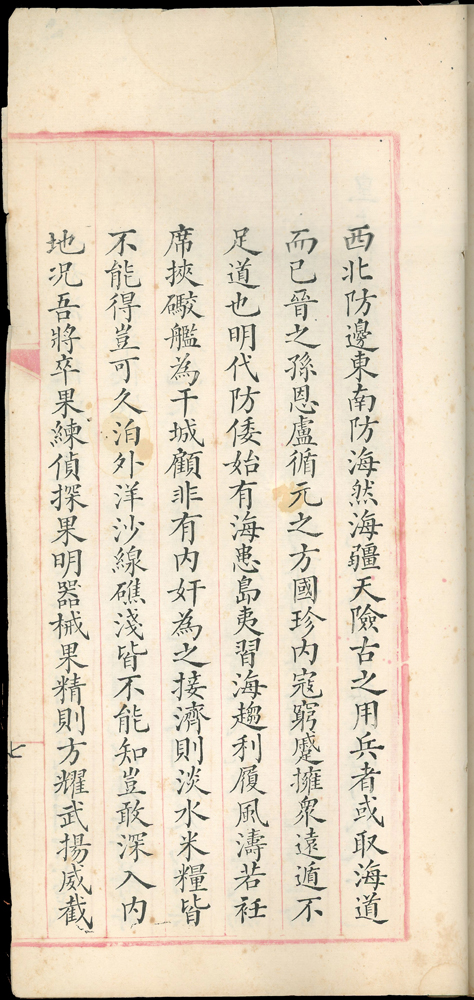 西北防邊東南防海然海疆天險古之用兵者或取海道
而已晉之孫恩盧循元之方國珍內寇窮蹙擁衆遠遁不
足道也明代防倭始有海患島夷習海趨利履風濤若衽
席挾礮艦為干城顧非有内奸為之接濟則淡水米糧皆
不能得豈可久泊外洋沙線礁淺皆不能知豈敢深入内
地况吾將卒果練偵探果明器械果精則方耀武揚威截
七